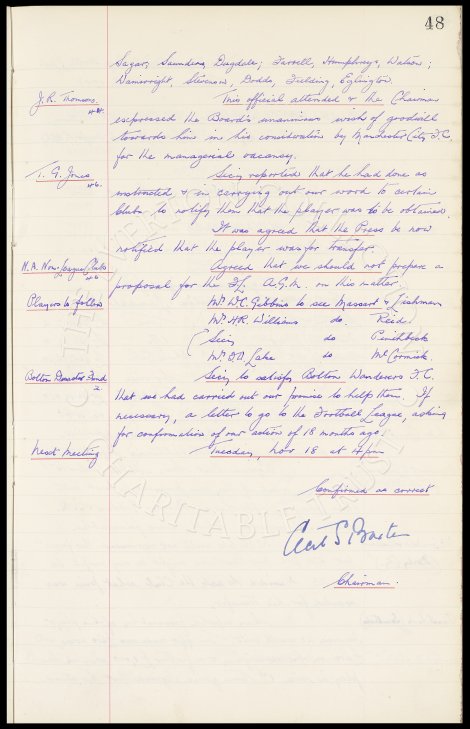 48
Sagar, Saunders, Dugdale; Farrell, Humphreys, Watson;
Wainwright, Stevenson, Dodds, Fielding, Eglington.
J.R. Thomas. This official attended & the Chairman
expressed the Board's unanimous wish of goodwill
towards him in his consideration by Manchester City F.C.
for the managerial vacancy.
T. G. Jones Secy reported that he had done as
instructed & in carrying out our word to certain
clubs to notify them that the player was to be obtained.
It was agreed that the Press be now
notified that the player was for transfer.
N.A. Non-League Clubs Agreed that we should not prepare a
proposal for the F/L A.G.M. on this matter.
Players to follow Mr W.C. Gibbins to see Massart &
Mr H.R. Williams do. Reid.
Secy do Pinchbeck
Mr Lake do McCormick.
Bolton Disaster Fund Secy to satisfy Bolton Wanderers F.C.
that we had carried out our promise to help them. If
necessary, a letter to go to the Football League, asking
for confirmation of our action of 18 months ago.
Next Meeting Tuesday, Nov 18 at 4pm
Confirmed as correct
Chairman.
THE EVERTON
CHARITABLE TRUST